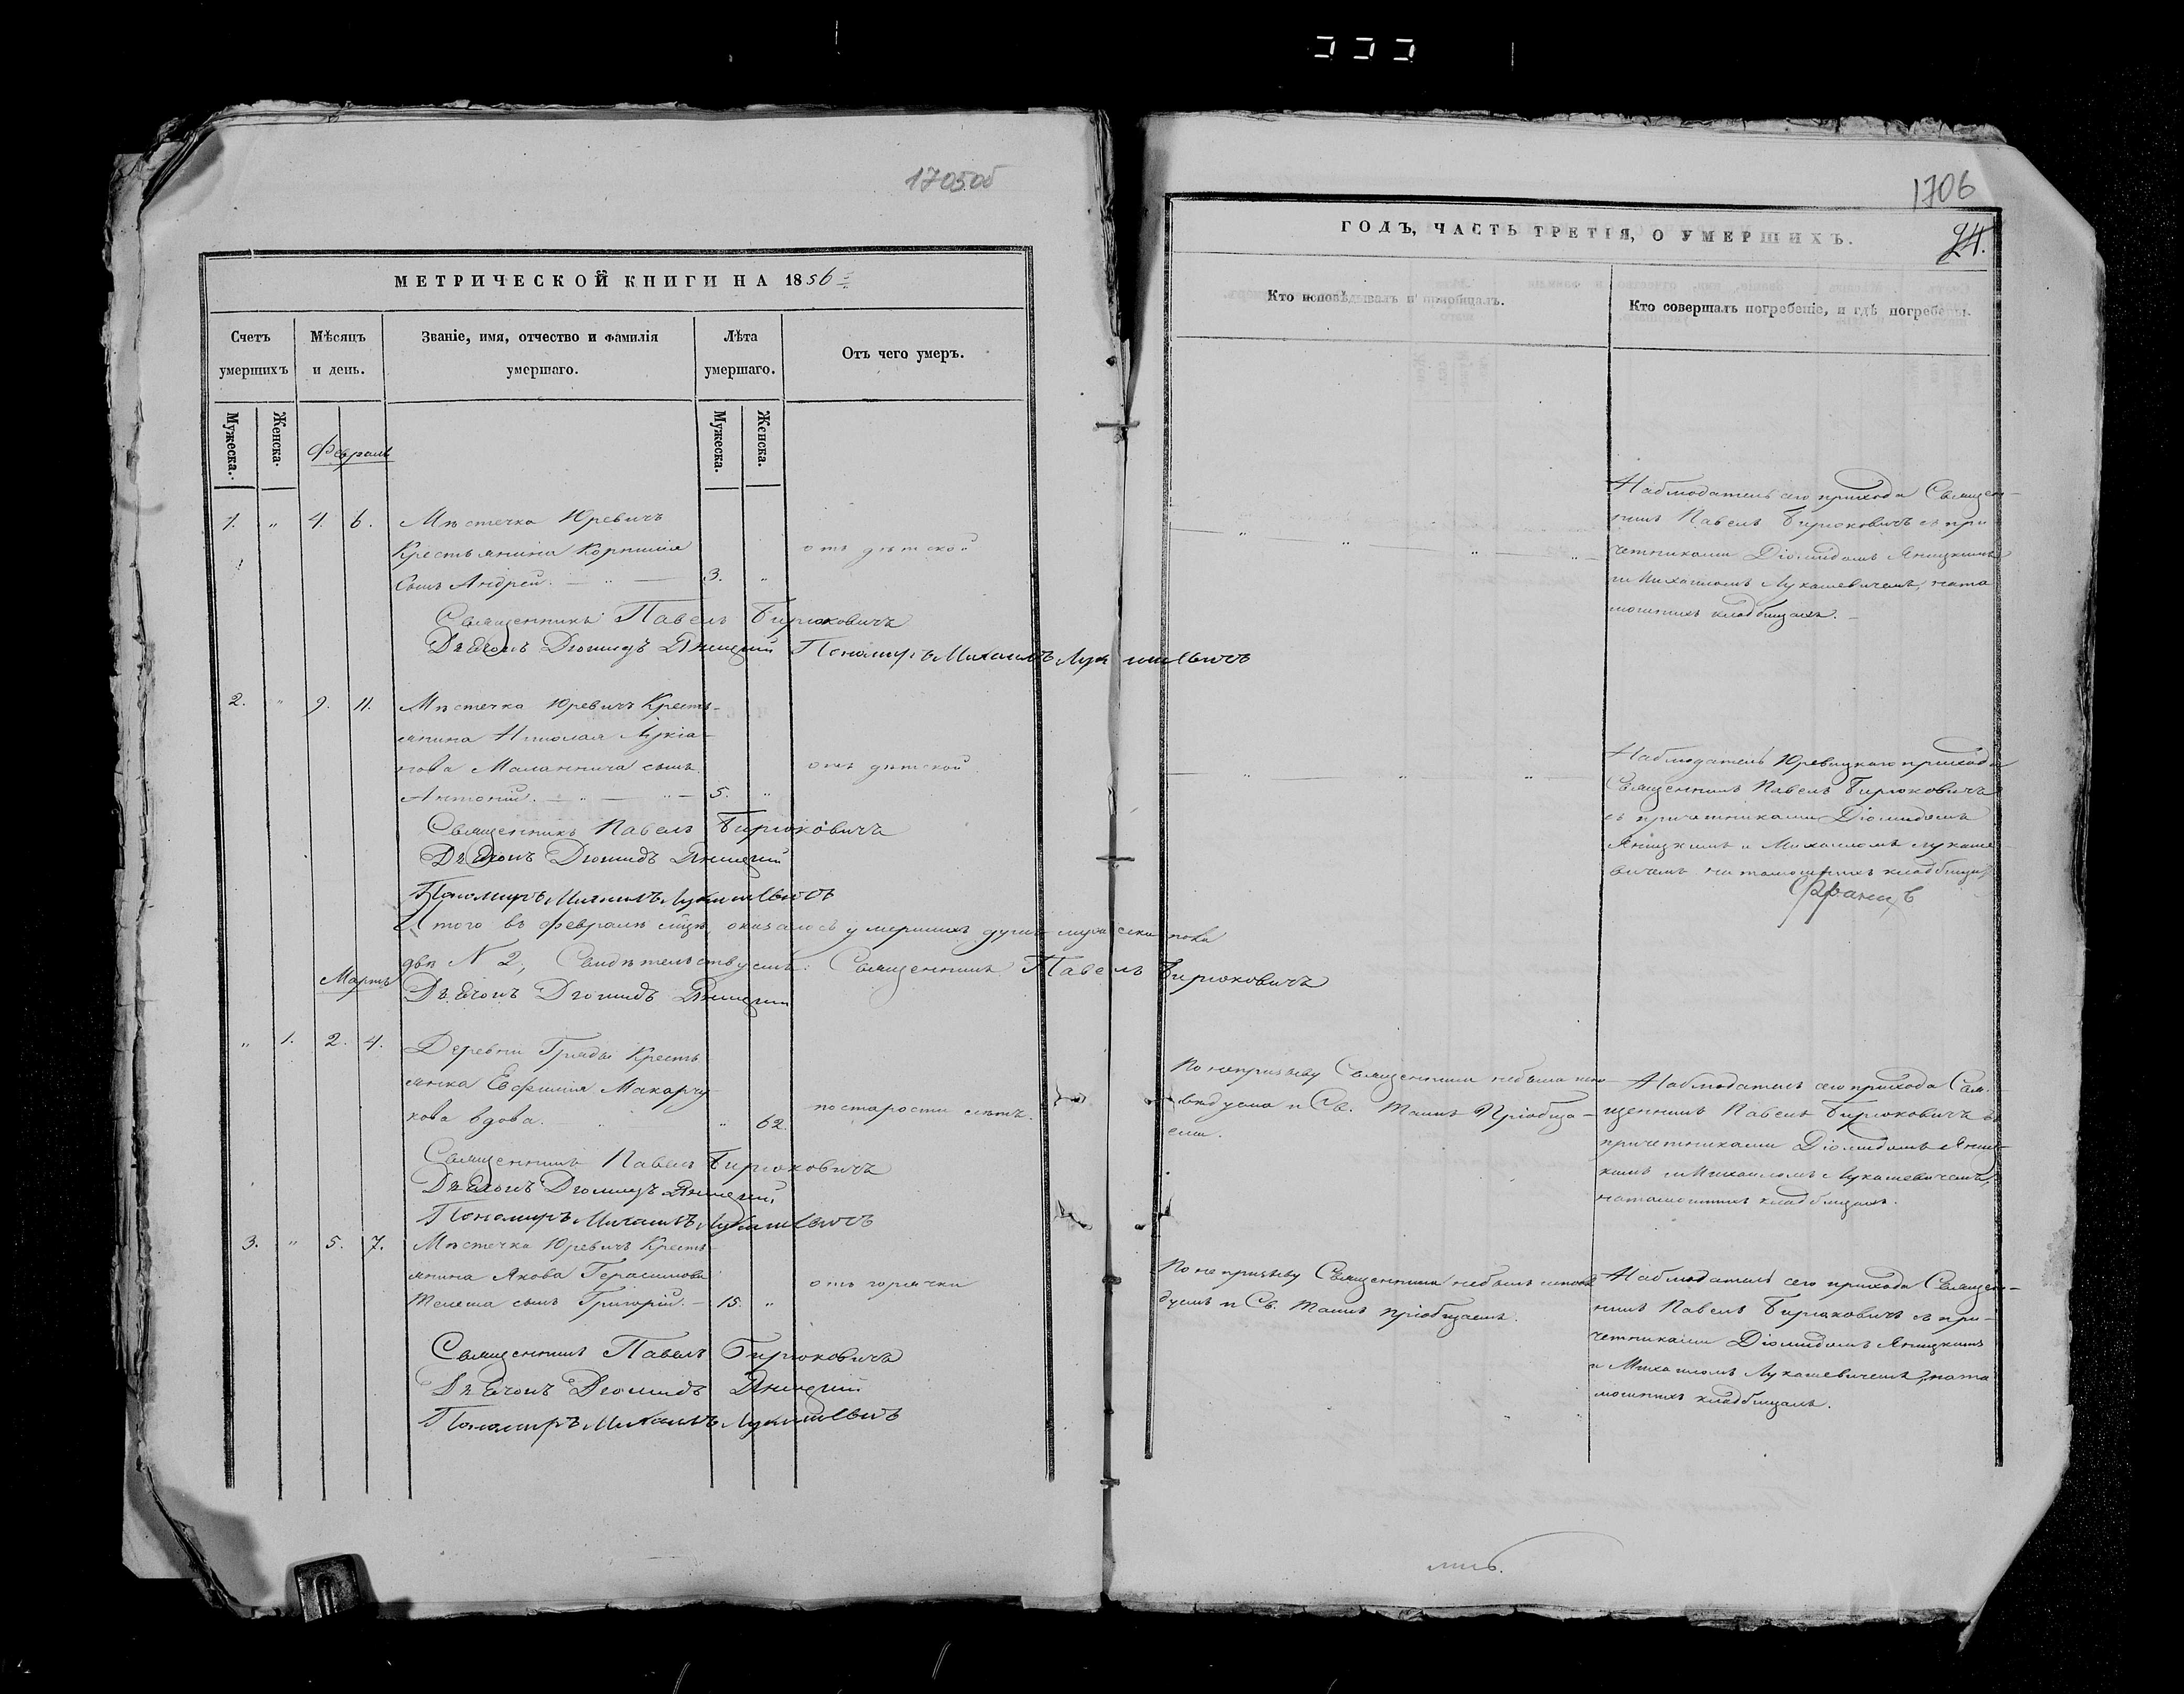 1705об
МЕТРИЧЕСКОЙ КНИГИ НА 1856
Счетъ умершихъ
Мѣсяцъ и день.
Званіе, имя, отчество и фамилія умершаго.
Лѣта умершаго.
Отъ чего умеръ.
Мужеска.
Женска.
Мужеска.
Женска.
Февраль
1. " 4. 6. Мѣстечка Юревичъ
Крестьянина Корнилія
отъ дѣтской
сынъ Андрей. — " — 3. "
Священникъ Павелъ Бирюковичъ
Дьячокъ Діомидъ Яницкій Пономаръ Михаилъ Лукашевичъ
2. " 9. 11. Мѣстечка Юревичъ Кресть-
янина Николая Лукіа-
нова сынъ
отъ дѣтской
Антоній. — " — " — 5. "
Священникъ Павелъ Бирюковичъ
Дьячокъ Діомидъ Яницкій
Пономаръ Михаилъ Лукашевичъ
Итого въ февралѣ оказалось умершихъ душъ мужеска пола
двѣ N 2, Свидѣтельствуемъ: Священникъ Павелъ Бирюковичъ
Мартъ
Дьячокъ Діомидъ Яницкій
" 1. 2. 4. Деревни Гряды Кресть-
янка Евфимія Макарчу-
кова вдова. " 62.
по старости лѣтъ.
Священникъ Павелъ Бирюковичъ
Дьячокъ Діомидъ Яницкій
Пономаръ Михаилъ Лукашевичъ
3. " 5. 7. Мѣстечка Юревичъ Кресть-
янина Якова Герасимова
отъ горячки
сынъ Григорій. — 15. "
Священникъ Павелъ Бирюковичъ
Дьячокъ Діомидъ Яницкій
Пономаръ Михаилъ Лукашевичъ
1706
24.
ГОДЪ, ЧАСТЬ ТРЕТІЯ, О УМЕРШИХЪ.
Кто исповѣдывалъ и пріобщалъ.
Кто совершалъ погребеніе, и гдѣ погребены.
Наблюдатель сего прихода Священ-
никъ Павелъ Бирюковичъ съ при-
четниками Діомидомъ Яницкимъ
и Михаиломъ Лукашевичемъ, на та-
мошнихъ кладбищахъ. —
Наблюдатель Юревицкаго прихода
Священникъ Павелъ Бирюковичъ
съ причетниками Діомидомъ
Яницкимъ и Михаиломъ Лукаше-
вичемъ на тамошнихъ
По непризыву Священника небыла испо-
вѣдуема и Св. Таинъ Пріобща-
ема.
Наблюдатель сего прихода Свя-
щенникъ Павелъ Бирюковичъ съ
причетниками Діомидомъ Яниц-
кимъ и Михаиломъ Лукашевичемъ,
на тамошнихъ кладбищахъ.
По непризыву Священника небылъ исповѣ-
дуемъ и Св. Таинъ пріобщаемъ.
Наблюдатель сего прихода Священ-
никъ Павелъ Бирюковичъ съ при-
четниками Діомидомъ Яницкимъ
и Михаиломъ Лукашевичемъ, на та-
мошнихъ кладбищахъ.